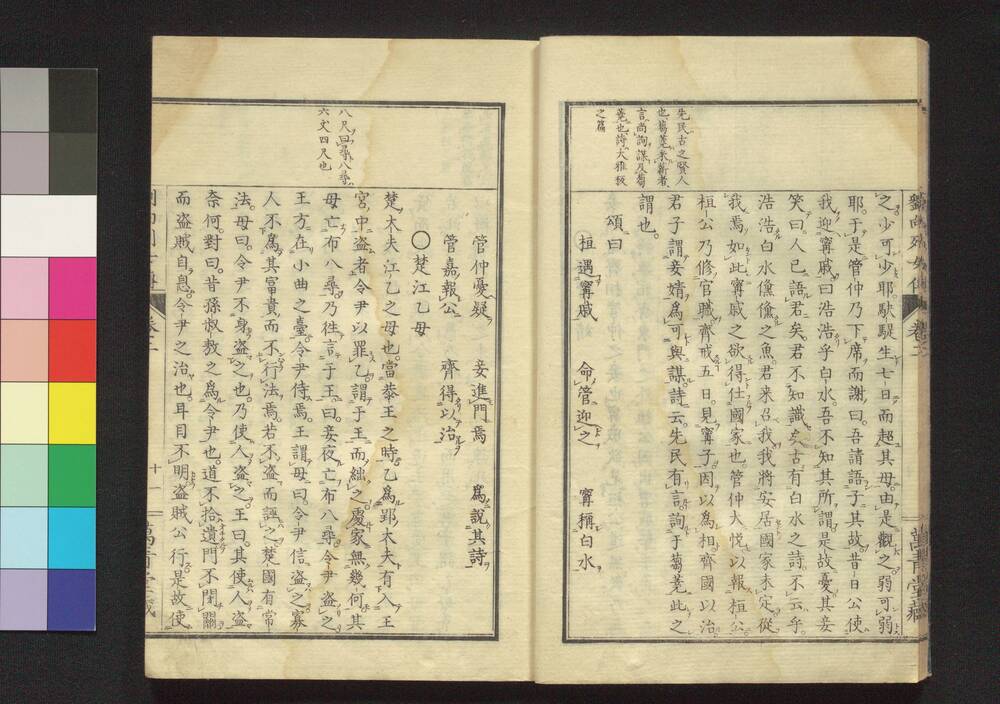 先民古之賢人
也蒭蕘采薪者
言尚詢謀及蒭
蕘也詩大雅板
之篇
之少可少耶駃騠生七日而超其母由是觀之弱可弱
耶于是管仲乃下席而謝曰吾請語子其故昔日公使
我迎寗戚曰浩浩乎白水吾不知其所謂是故憂其妾
笑曰人已語君矣君不知識矣古有白水之詩不云乎
浩浩白水儵儵之魚君来召我我將安居國家未定從
我焉如此寗戚之欲得仕國家也管仲大悅以報桓公
桓公乃修官職齊戒五日見寗子因以為相齊國以治
君子謂妾婧為可與謀詩云先民有言詢于蒭蕘此之
謂也
頌曰
桓遇寗戚 命管迎之 寗稱白水
八尺曰尋八尋
六丈四尺也
管仲憂疑 妾進問焉 為說其詩
管嘉報公 齊得以治
〇楚江乙母
楚大夫江乙之母也當恭王之時乙為郢大夫有入王
宮中盜者令尹以罪乙謂于王而絀之處家無幾何其
母亡布八尋乃徃言于王曰妾夜亡布八尋令尹盜之
王方在小曲之臺令尹侍焉王謂母曰令尹信盜之寡
人不為其富貴而不行法焉若不盜而誣之楚國有常
法母曰令尹不身盜之也乃使人盜之王曰其使人盜
奈何對曰昔孫叔敖之為令尹也道不拾遺門不閉關
而盜賊自息今令尹之治也耳目不明盜賊公行是故使
十一
萬青堂藏